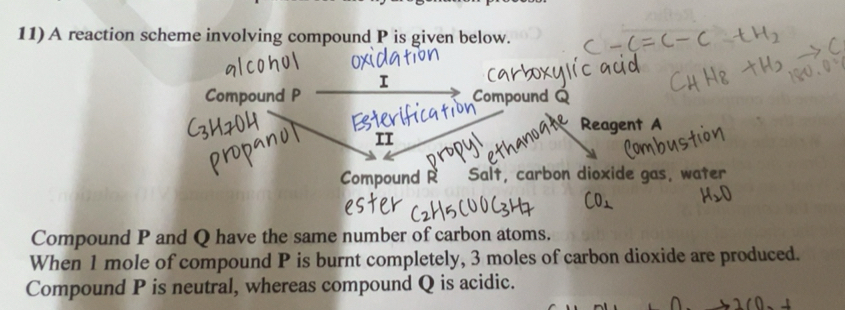 11) A reaction scheme involving compound P is given below.
C-C=C-C +H2
alcohol oxidation
carboxylic acid
I
Compound P Compound Q
C3H7OH Esterification Reagent A
propanol II combustion
propyl ethanoate
Compound R Salt, carbon dioxide gas, water
ester C2H5COOC3H7 CO2 H2O
Compound P and Q have the same number of carbon atoms.
When 1 mole of compound P is burnt completely, 3 moles of carbon dioxide are produced.
Compound P is neutral, whereas compound Q is acidic.